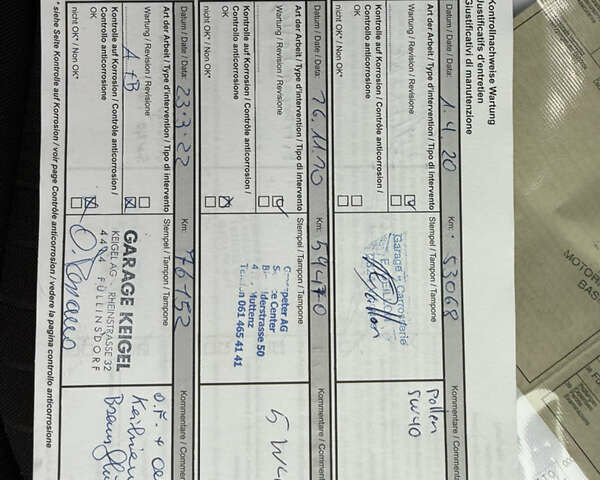 Kontrollnachweise Wartung
Justificatifs d'entretien
Giustificativi di manutenzione
Datum / Date / Data: 1.4.20 Km: 53068
Art der Arbeit / Type d'intervention / Tipo di intervento Stempel / Tampon / Tampone Kommentare / Comment
Wartung / Revision / Revisione
Kontrolle auf Korrosion / Contrôle anticorrosion /
Controllo anticorrosione
OK
nicht OK* / Non OK*
Garage + Carrosserie
Pollen
5W40
Datum / Date / Data: 26.11.20 Km: 59470
Art der Arbeit / Type d'intervention / Tipo di intervento Stempel / Tampon / Tampone Kommentare / Comment
Wartung / Revision / Revisione
Kontrolle auf Korrosion / Contrôle anticorrosion /
Controllo anticorrosione
OK
nicht OK* / Non OK*
peter AG
ce Center
derstrasse 50
Muttenz
061 465 41 41
5 W4
Datum / Date / Data: 23.3.22 Km: 76152
Art der Arbeit / Type d'intervention / Tipo di intervento Stempel / Tampon / Tampone Kommentare / Commen
Wartung / Revision / Revisione
A + B
Kontrolle auf Korrosion / Contrôle anticorrosion /
Controllo anticorrosione
OK
nicht OK* / Non OK*
GARAGE KEIGEL
KEIGEL AG RHEINSTRASSE 32
4414 FÜLLINSDORF
* siehe Seite Kontrolle auf Korrosion / voir page Contrôle anticorrosion / vedere la pagina controllo anticorrosione
MOTOR
BAS